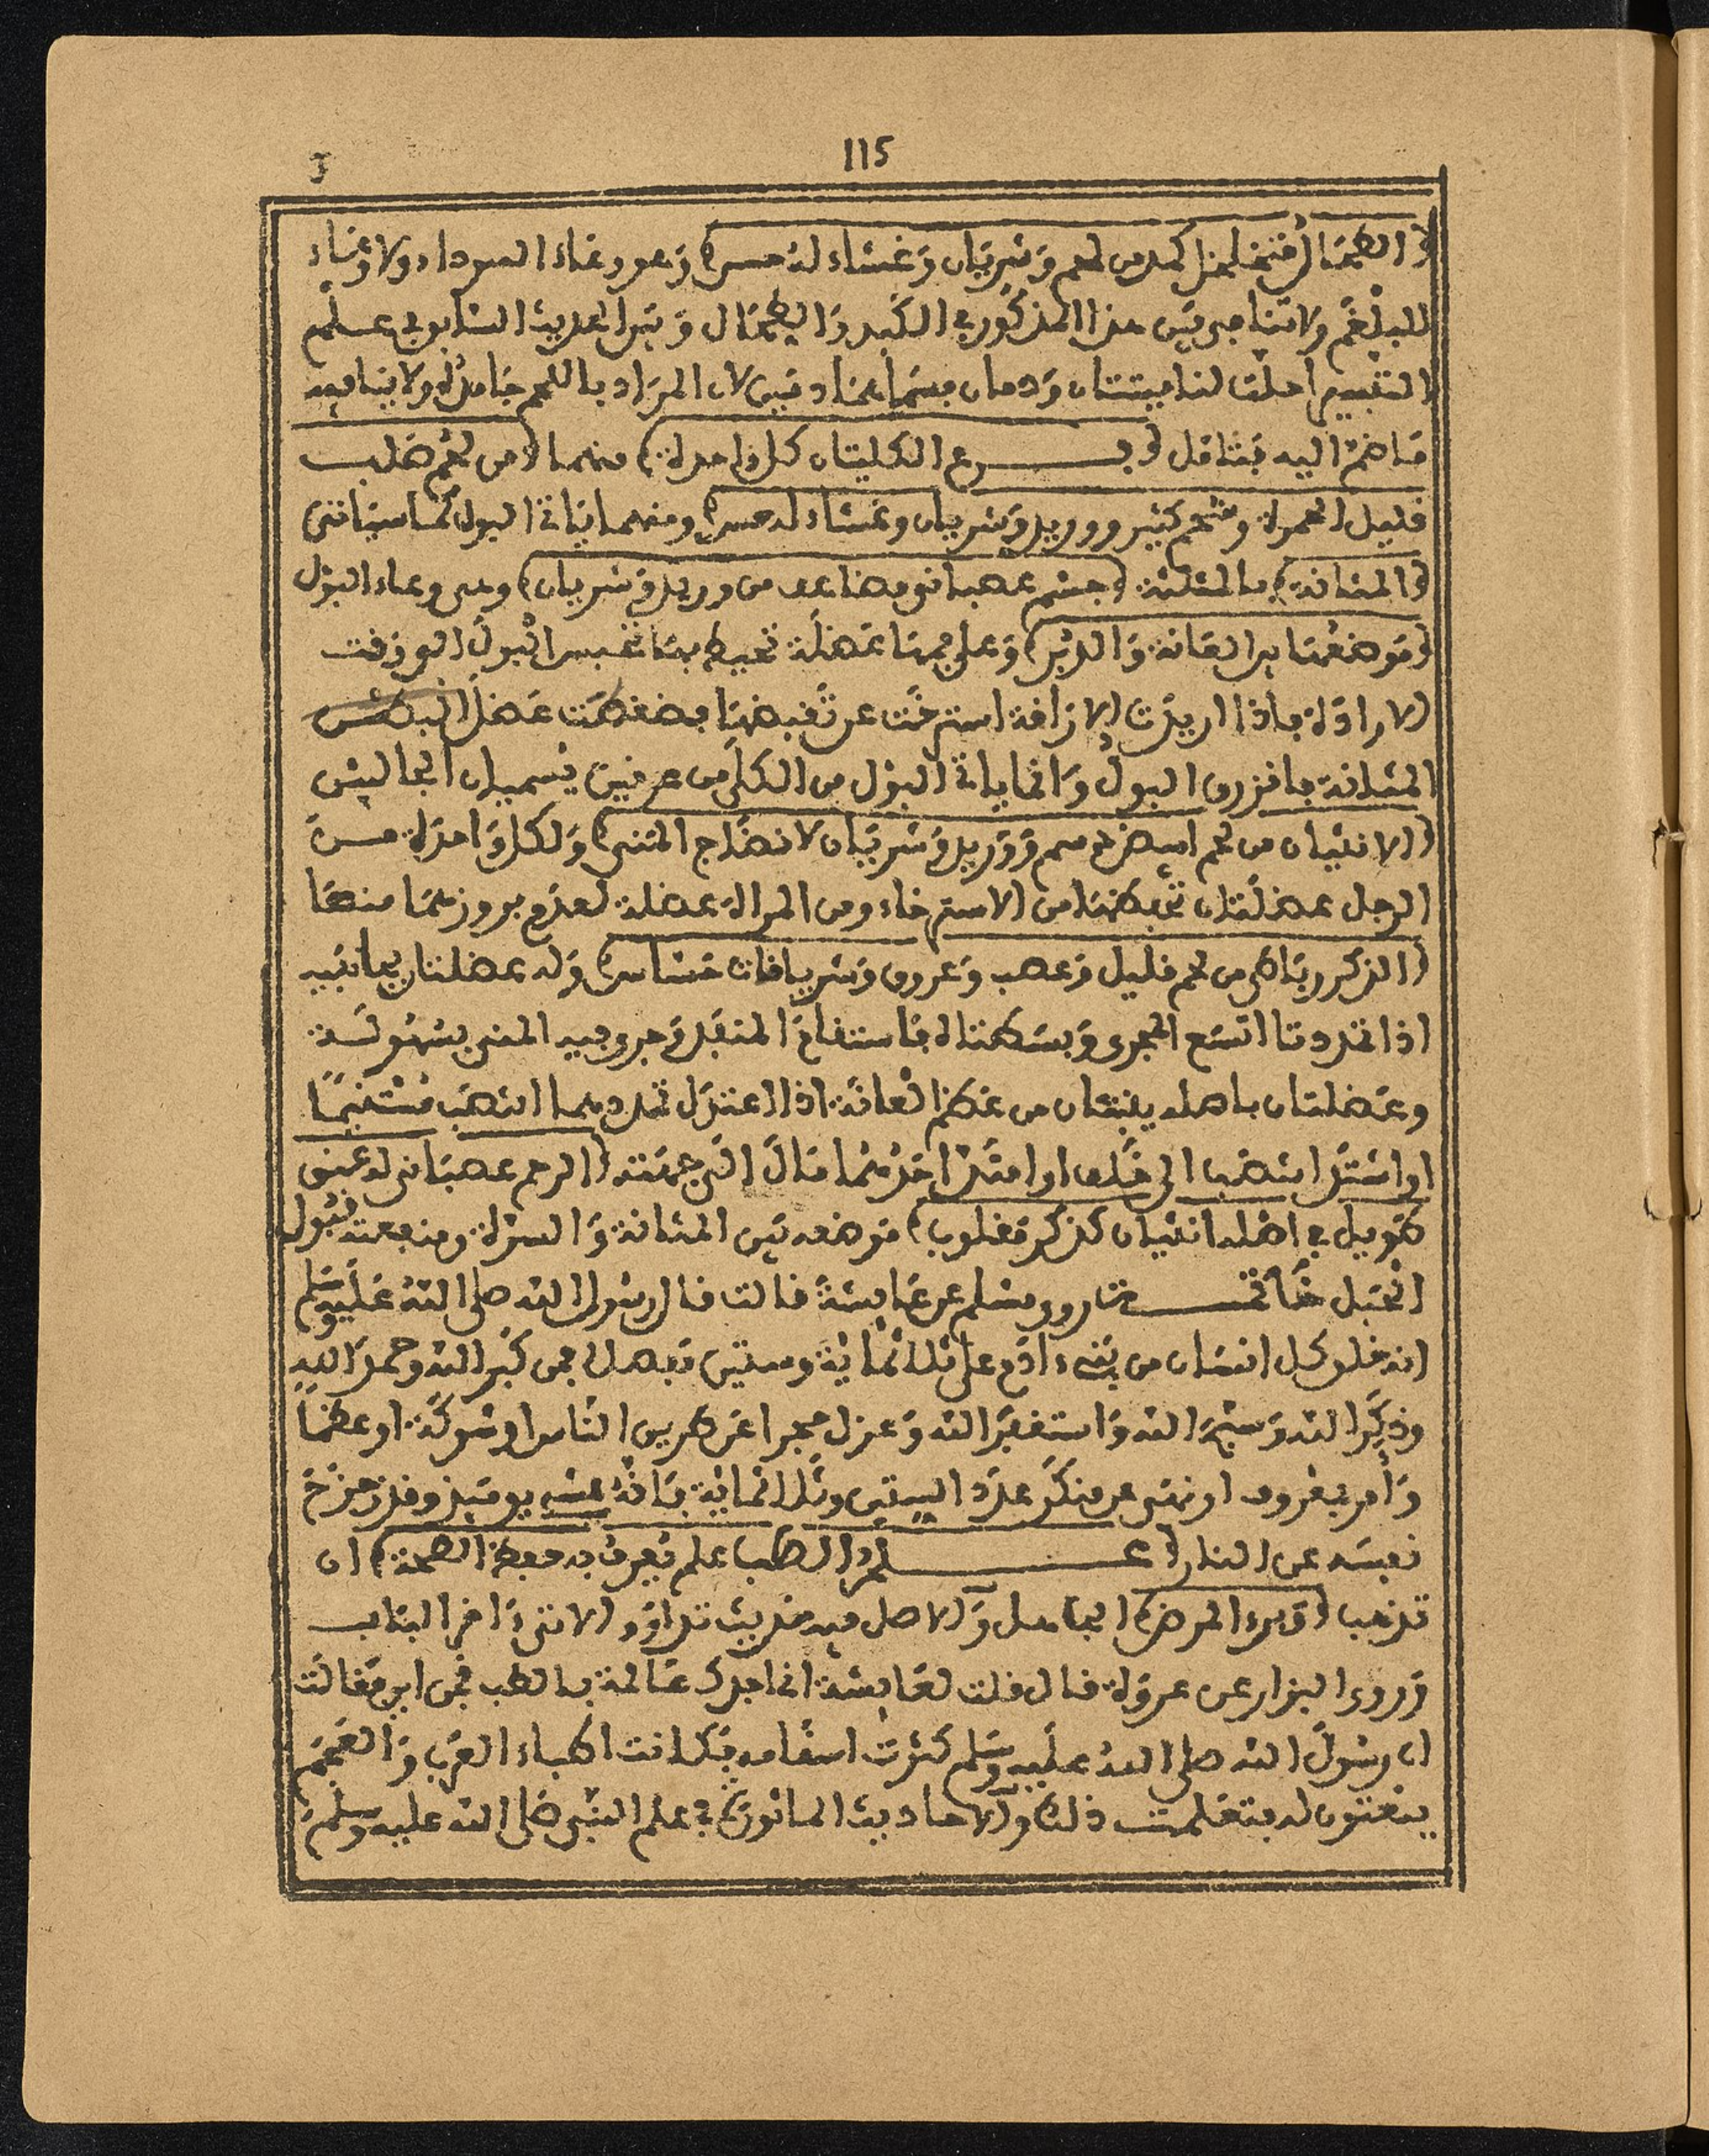 115
(الطحال متخلخل كمد من لحم وشريان وغشاء له حس) وهو وعاء السوداء ولا وعاء
للبلغم ولا تنافي بين هذا المذكور في الكبد والطحال وبين الحديث السابق في علم
التفسير احلت لنا ميتتان ودمان فسماهما دمين لان المراد باللحم جامد لا ينافيه
ما ضم اليه فتامل فرع الكليتان كل واحدة) منهما (من لحم صلب
قليل الحمرة وشحم كثير ووريد وشريان وغشاء له حس) ومنهما ياتي البول كما سياتي
(المثانة) بالمثلثة (جسم عصباني مضاعف من وريد وشريان) وهي وعاء البول
(وموضعها بين العانة والدبر) وعلى فمها عضلة تحيط بها تحبس البول الى وقت
الارادة فاذا اريدت الاراقة استرخت عن تقبضها فضغطت عضل البطن
المثانة فانزرق البول وانما ياتي البول من الكلى من عرقين يسميان الحالبين
(الانثيان من لحم ابيض دسم ووريد وشريان لانضاج المني) ولكل واحدة من
الرجل عضلتان تحفظهما من الاسترخاء ومن المراة عضلة لعدم بروزهما منها
(الذكر رباطي من لحم قليل وعصب وعروق وشريانات حساس) وله عضلتان بجانبيه
اذا تمددتا اتسع المجرى وبسطتاه فاستقام المنفذ وجرى فيه المني بسهولة
وعضلتان باصله ينبتان من عظم العانة اذا اعتدل تمددهما انتصب مستقيما
او اشتد انتصب الى خلف او امتد احدهما مال الى جهته (الرحم عصباني له عنق
طويل في اصله انثيان كذكر مقلوب) موضعه بين المثانة والسرة ومنفعته قبول
الحبل خاتمـــة روى مسلم عن عايشة قالت قال رسول الله صلى الله عليه وسلم
انه خلق كل انسان من بني ءادم على ثلاثماية وستين مفصلا فمن كبر الله وحمد الله
وذكر الله وسبح الله واستغفر الله وعزل حجرا عن طريق الناس او شوكة او عظما
وامر بمعروف او نهى عن منكر عدد الستين وثلاثماية فانه يمشي يوميذ وقد زحزح
نفسه عن النار (علم الطب علم يعرف به حفظ الصحة) ان
تذهب (وبرء المرض) الحاصل والاصل فيه حديث تداووا الاتي ءاخر الباب
وروى البزار عن عروة قال قلت لعايشة اني اجدك عالمة بالطب فمن اين فقالت
ان رسول الله صلى الله عليه وسلم كثرت اسقامه فكانت اطباء العرب والعجم
ينعتون له فتعلمت ذلك والاحاديث الماثورة في علم النبي صلى الله عليه وسلم